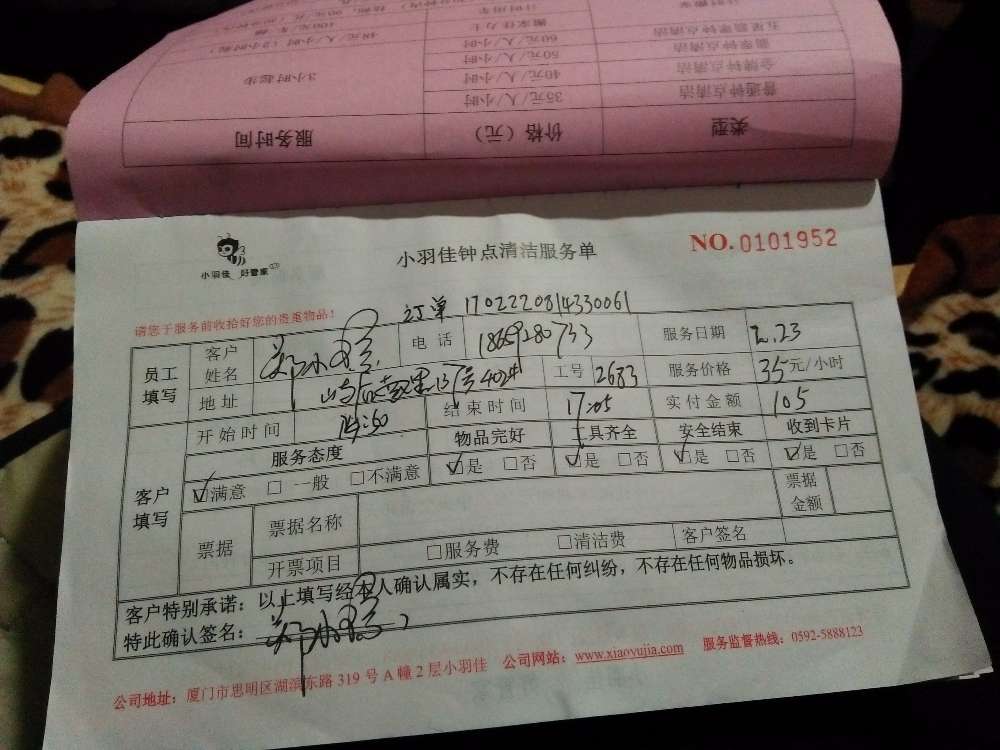 类型 价格（元） 服务时间
普通钟点清洁 35元/人/小时 3小时起步
金牌钟点清洁 40元/人/小时
翡翠钟点清洁 50元/人/小时
五星翡翠钟点清洁 60元/人/小时
搬家佳力士 48元/人/小时（2小时起）
计时用车
小羽佳 好管家
小羽佳钟点清洁服务单
NO.0101952
请您于服务前收拾好您的贵重物品！
订单 1702220814330061
员工填写 客户姓名 电话 服务日期 2.23
地址 工号 2683 服务价格 35元/小时
开始时间 结束时间 17:05 实付金额 105
客户填写 服务态度 物品完好 工具齐全 安全结束 收到卡片
☑满意 □一般 □不满意 ☑是 □否 ☑是 □否 ☑是 □否 ☑是 □否
票据 票据名称 票据金额
开票项目 □服务费 □清洁费 客户签名
客户特别承诺：以上填写经本人确认属实，不存在任何纠纷，不存在任何物品损坏。
特此确认签名：
公司地址：厦门市思明区湖滨东路319号A幢2层小羽佳 公司网站：www.xiaoyujia.com 服务监督热线：0592-5888123